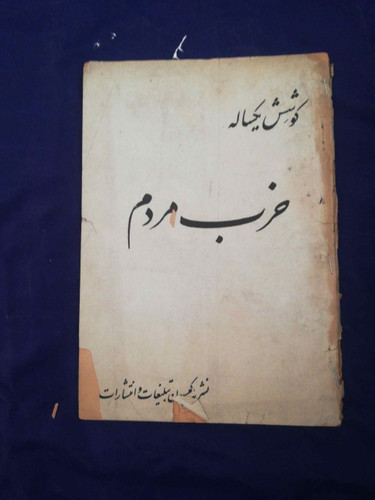 کوشش یکساله
حزب مردم
نشریه تبلیغات و انتشارات